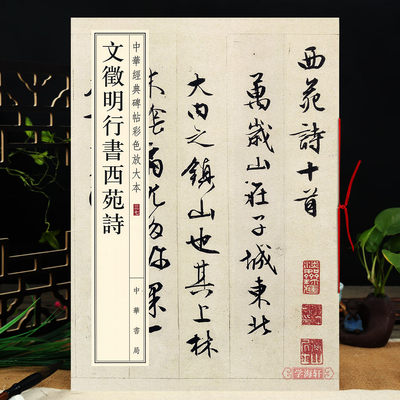 中華經典碑帖彩色放大本
三七
文徵明行書西苑詩
中華書局
西苑詩十首
萬歲山在子城東北
大内之鎮山也其上林
木套雨尤多珎果一
学海轩